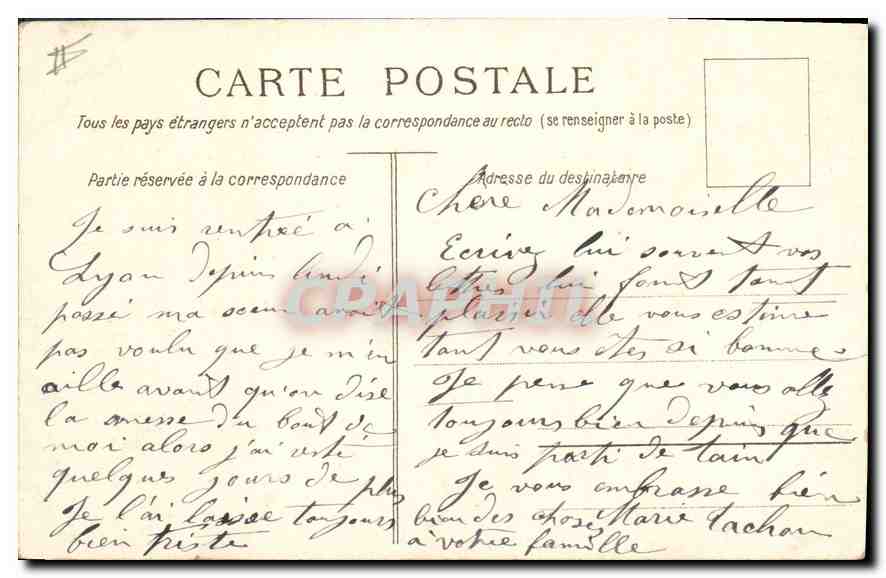 CARTE POSTALE
Tous les pays étrangers n'acceptent pas la correspondance au recto (se renseigner à la poste)
Partie réservée à la correspondance
Adresse du destinataire
Je suis rentrée à
Lyon depuis lundi
passé ma soeur avait
pas voulu que je m'en
aille avant qu'on dise
la messe du bout de
moi alors j'ai resté
quelques jours de plus
Je l'ai laissée toujours
bien triste
Chère Mademoiselle
Ecrivez lui souvent vos
lettres lui font tant
plaisir elle vous estime
tant vous êtes si bonne
Je pense que vous allez
toujours bien depuis que
je suis parti de tain
Je vous embrasse bien
bien des choses Marie Cachon
à votre famille
CPARHTI